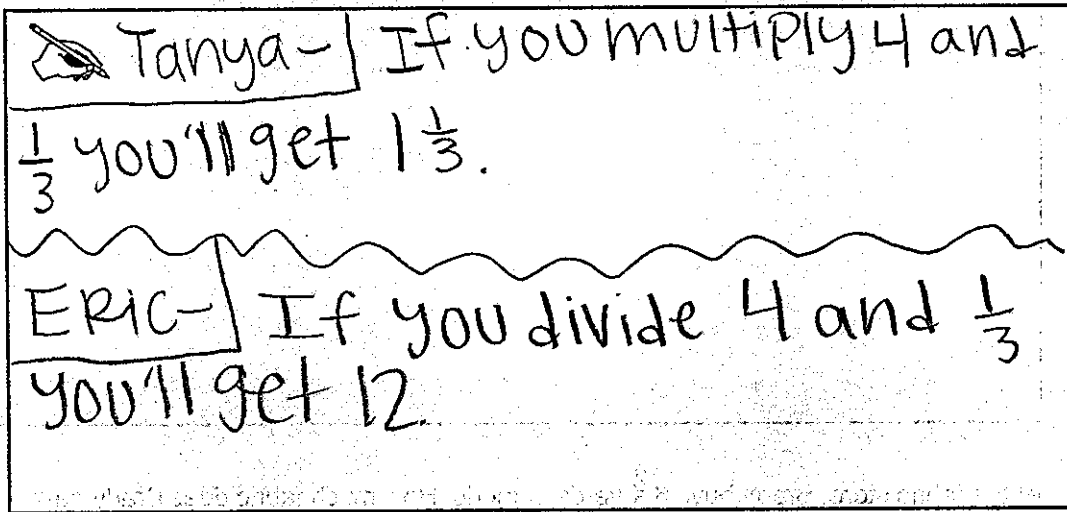 Tanya- If you multiply 4 and
1/3 you'll get 1 1/3.
ERIC- If you divide 4 and 1/3
you'll get 12.